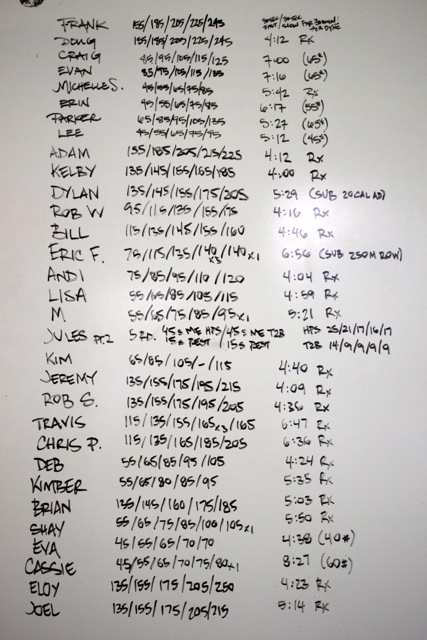 FRANK 155/185/205/225/245
DOUG 155/185/205/225/245 4:12 Rx
CRAIG 85/95/105/115/125 7:00 (65#)
EVAN 85/95/105/115/135 7:16 (65#)
MICHELLE S. 45/55/65/75/85 5:42 Rx
ERIN 45/55/65/75/85 6:17 (55#)
PARKER 65/85/95/105/135 5:27 (65#)
LEE 45/55/65/75/95 5:12 (45#)
ADAM 155/185/205/215/225 4:12 Rx
KELBY 135/145/155/165/185 4:00 Rx
DYLAN 135/145/155/175/205 5:29 (SUB 20 CAL AD)
ROB W 95/115/135/155/75 4:16 Rx
BILL 115/135/145/155/160 4:46 Rx
ERIC F. 75/115/135/140x3/140x1 6:56 (SUB 250M ROW)
ANDI 75/85/95/110/120 4:04 Rx
LISA 55/65/85/105/115 4:59 Rx
M 55/65/75/85/95x1 5:21 Rx
JULES PT.2 5 RD. 45s ME HPS/45s ME T2B HPS 25/21/17/16/17
15s REST 15s REST T2B 14/9/9/9/9
KIM 65/85/105/-/115 4:40 Rx
JEREMY 135/155/175/195/215 4:09 Rx
ROB S. 135/155/175/195/205 4:36 Rx
TRAVIS 115/135/155/165x3/165 6:47 Rx
CHRIS P. 115/135/165/185/205 6:36 Rx
DEB 55/65/85/95/105 4:24 Rx
KIMBER 55/65/80/85/95 5:35 Rx
BRIAN 135/145/160/175/185 5:03 Rx
SHAY 55/65/75/85/100/105x1 5:50 Rx
EVA 45/55/65/70/70 4:38 (40#)
CASSIE 45/55/65/70/75/80x1 8:27 (60#)
ELOY 135/155/175/205/250 4:23 Rx
JOEL 135/155/175/205/215 5:14 Rx